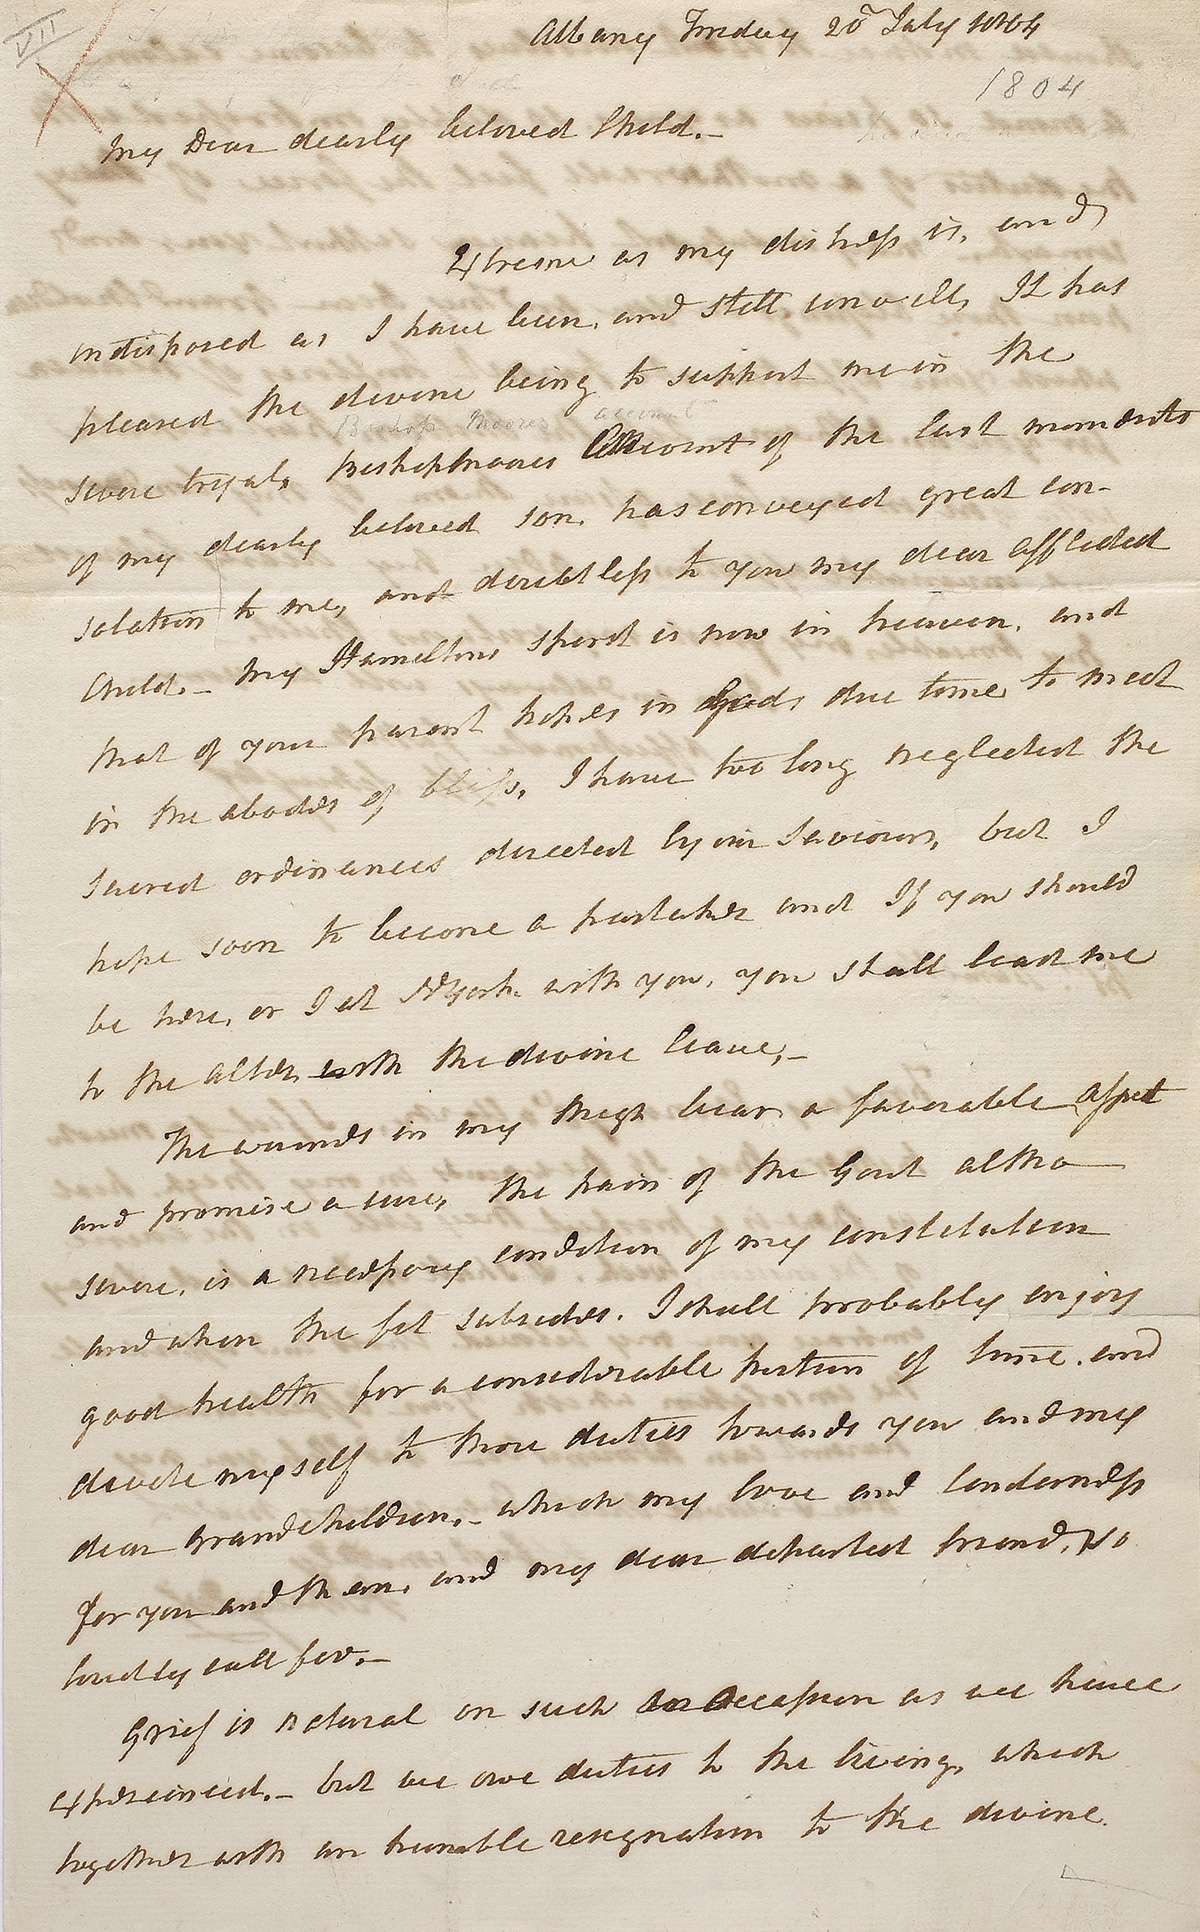 VII
Albany Friday 20 July 1804
1804
My Dear dearly beloved Child.–
Extreme as my distress is, and
indisposed as I have been, and still, am ill, It has
pleased the divine being to support me in the
Bishop Moores account
severe tryal, Bishop Moores Account of the last moments
of my dearly beloved son, has conveyed great con-
solation to me, and doubtless to you my dear afflicted
Child.– My Hamiltons spirit is now in heaven, and
that of your parent hopes in Gods due time to meet
in the abodes of bliss, I have too long neglected the
sacred ordinances directed by our Saviour, but I
hope soon to become a partaker and If you should
be here, or I at NYork with you, you shall lead me
to the alter with the divine leave,–
The wounds in my thigh bear a favorable aspect
and promise a cure, the pain of the Gout altho
severe, is a necessary condition of my constitution
and when the fit subsides. I shall probably enjoy
good health for a considerable portion of time. and
devote myself to those duties towards you and my
dear Grandchildren,– which my love and tenderness
for you and them, and my dear departed friend, so
loudly call for.–
Grief is natural on such an Occasion as we have
experienced.– but we owe duties to the living, which
together with an humble resignation to the divine